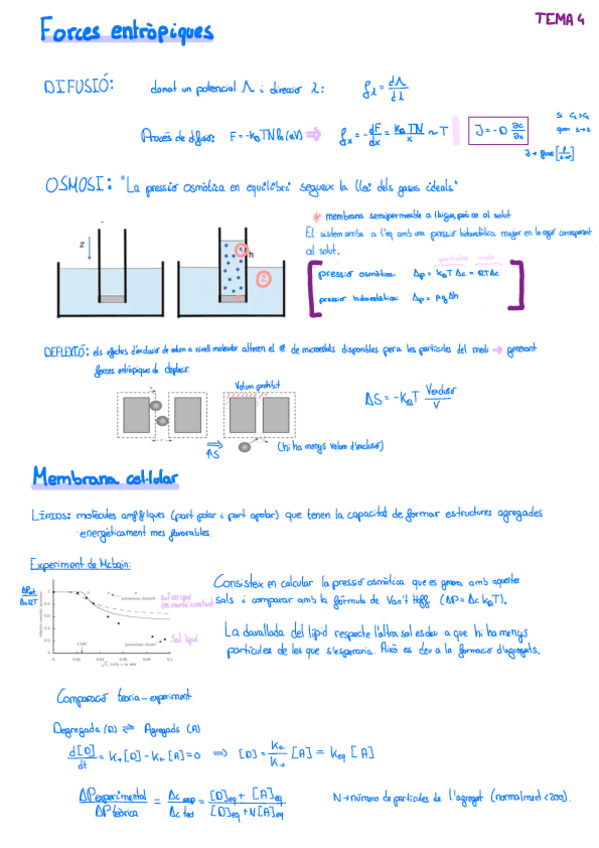 TEMA 4
Forces entròpiques
DIFUSIÓ: donat un potencial Λ i direcció λ: f_λ = dΛ/dλ
Procés de difusió: F = -k_B T N ln(αV) ⇒ f_x = -dF/dx = k_B T N/x ~ T
J = -D ∂c/∂x
Si C₁>C₂
OSMOSI: "La pressió osmòtica en equilibri segueix la llei dels gasos ideals"
z
h
1
2
* membrana semipermeable a l'aigua, però no al solut
El sistema arriba a l'eq amb una pressió hidrostàtica major en la regió corresponent
al solut.
partícules mols
pressió osmòtica: Δp = k_B T Δc = RTΔc
pressió hidrostàtica: Δp = ρgΔh
DEPLEXIÓ: els efectes d'exclusió de volum a nivell molecular alteren el # de microestats disponibles per a les partícules del medi → generant
forces entròpiques de deplecció.
Volum prohibit
ΔS = -k_B T V exclusió/V
⇒
↑S
(hi ha menys volum d'exclusió)
Membrana cel·lular
LÍPIDS: molècules amfifíliques (part polar i part apolar) que tenen la capacitat de formar estructures agregades
energèticament més favorables.
Experiment de McBain:
1
0.8
0.6
0.4
0.2
0
0 0.02 0.04 0.06 0.08 0.1
CMC
potassium chloride
potassium oleate
Sal no lípid
Sal lípid
Consisteix en calcular la pressió osmòtica que es genera amb aquestes
sals i comparar amb la fórmula de Van't Hoff (ΔP = Δc k_B T).
La davallada del lípid respecte l'altra sal es deu a que hi ha menys
partícules de les que s'esperaria. Això es deu a la formació d'agregats.
Comparació teoria-experiment
Degregada (D) ⇌ Agregada (A)
d[D]/dt = K→[D] - K←[A] = 0 ⇒ [D] = K←/K→ [A] = Keq [A]
ΔP experimental/ΔP teòrica = Δc exp/Δc teo = [D]eq + [A]eq/[D]eq + N[A]eq
N → número de partícules de l'agregat (normalment <200).